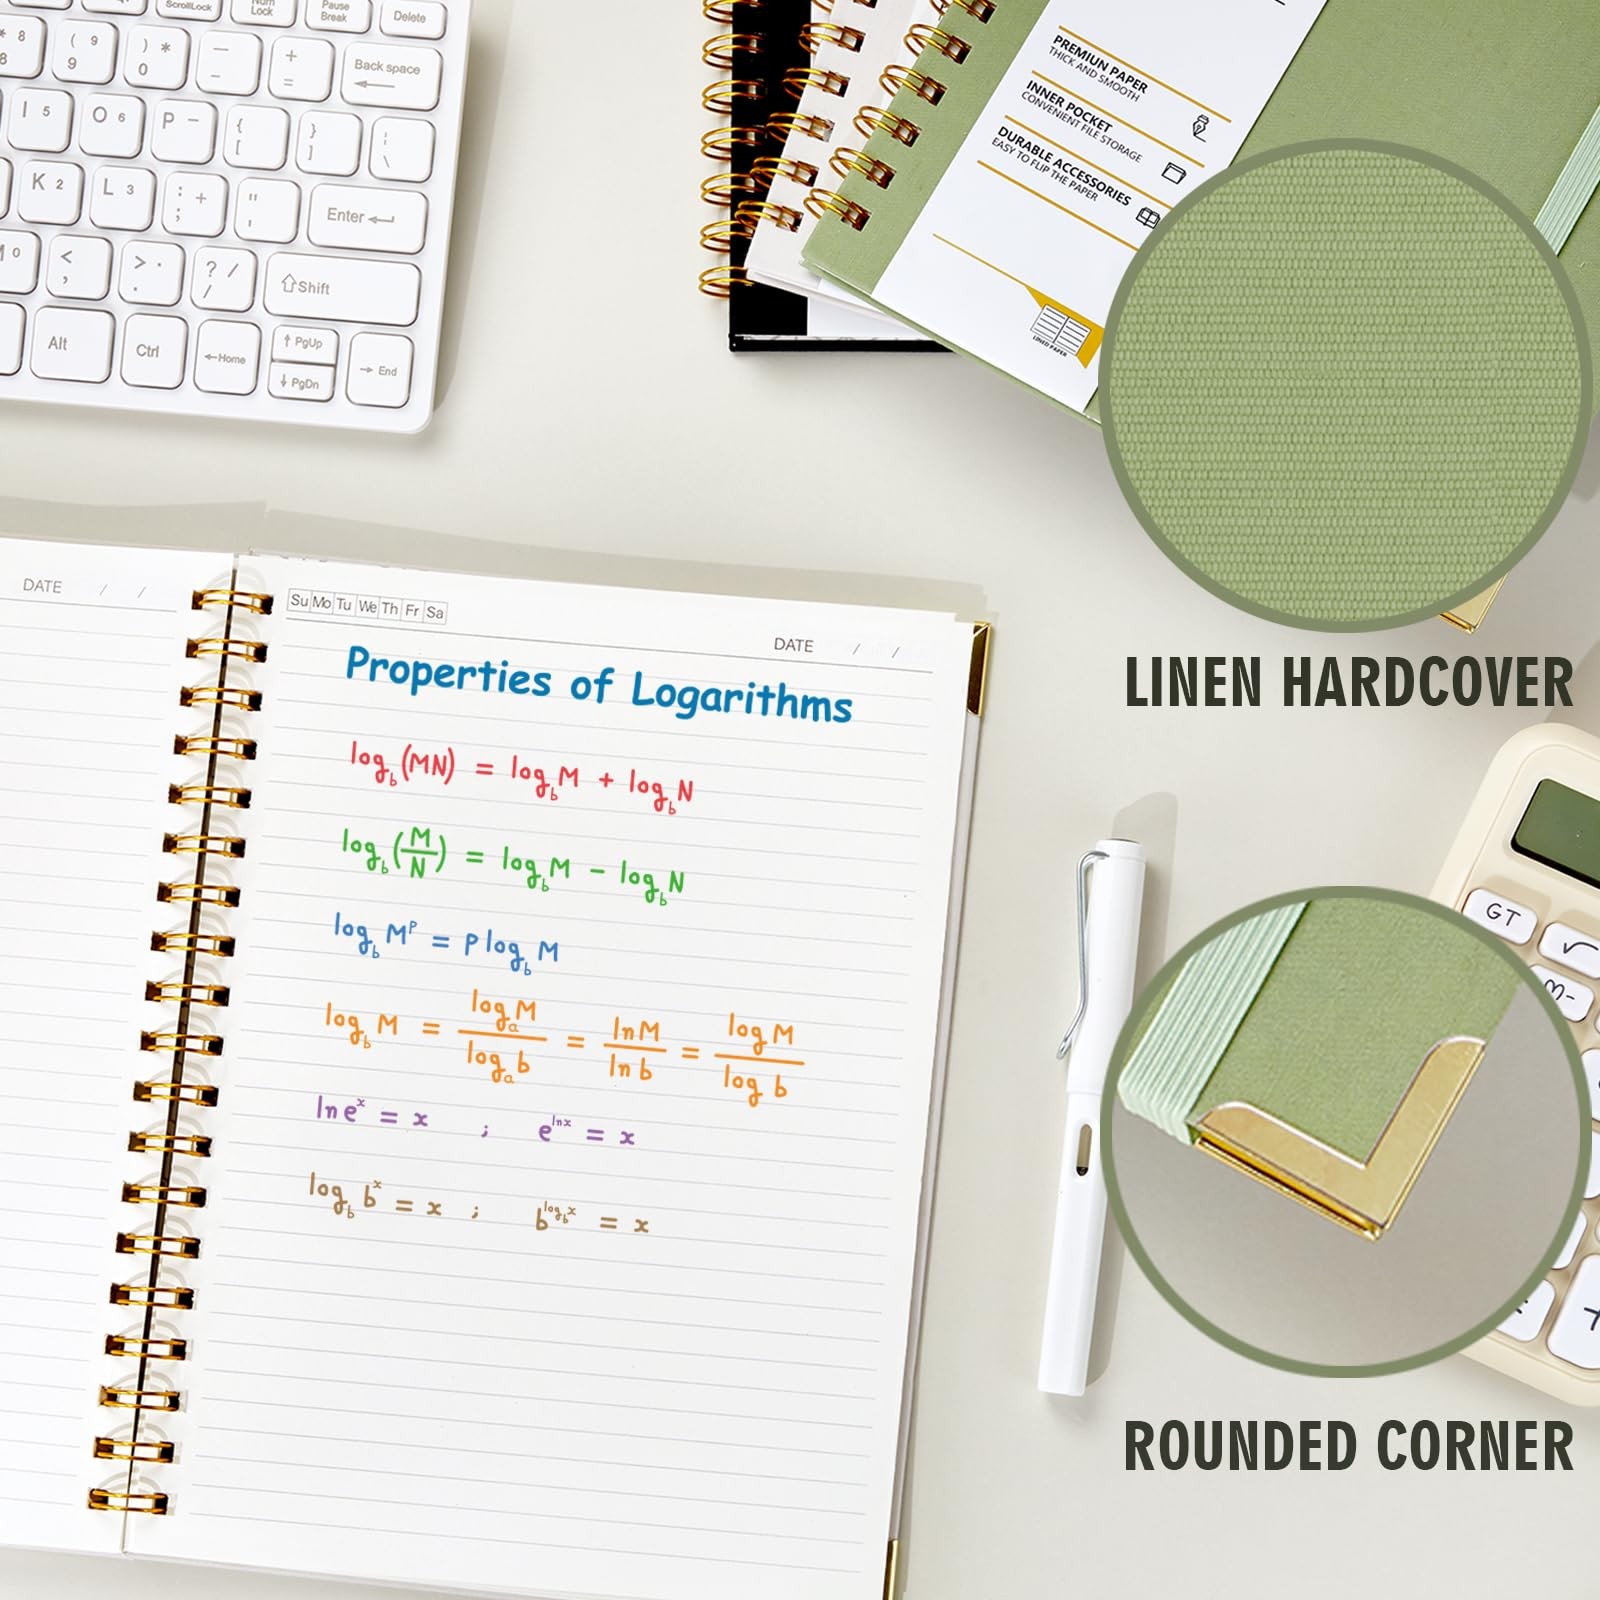 ScrollLock
Num Lock
Pause Break
Delete
* 8 8
( 9 9
) * 0
— -
+ =
Back space
I 5
O 6
P –
{ [
} ]
¦ \
K 2
L 3
: + ;
" '
Enter
0
< ,
> . .
? / /
Shift
Alt
Ctrl
←Home
↑ PgUp
↓ PgDn
→ End
PREMIUN PAPER
THICK AND SMOOTH
INNER POCKET
CONVENIENT FILE STORAGE
DURABLE ACCESSORIES
EASY TO FLIP THE PAPER
LINED PAPER
LINEN HARDCOVER
DATE / /
Su Mo Tu We Th Fr Sa
DATE / /
Properties of Logarithms
log_b(MN) = log_b M + log_b N
log_b(M/N) = log_b M − log_b N
log_b M^p = p log_b M
log_b M = log_a M / log_a b = ln M / ln b = log M / log b
ln e^x = x ; e^ln x = x
log_b b^x = x ; b^log_b x = x
GT
√
M-
ROUNDED CORNER